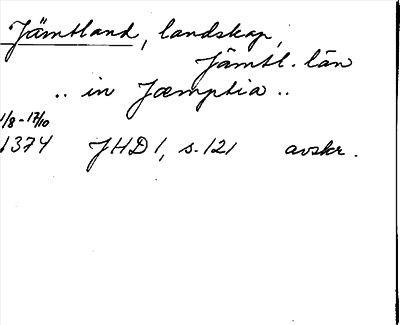 Jämtland, landskap,
Jämtl. län
.. in Jæmptia ..
1/8-17/10
1374 JHD 1, s. 121 avskr.